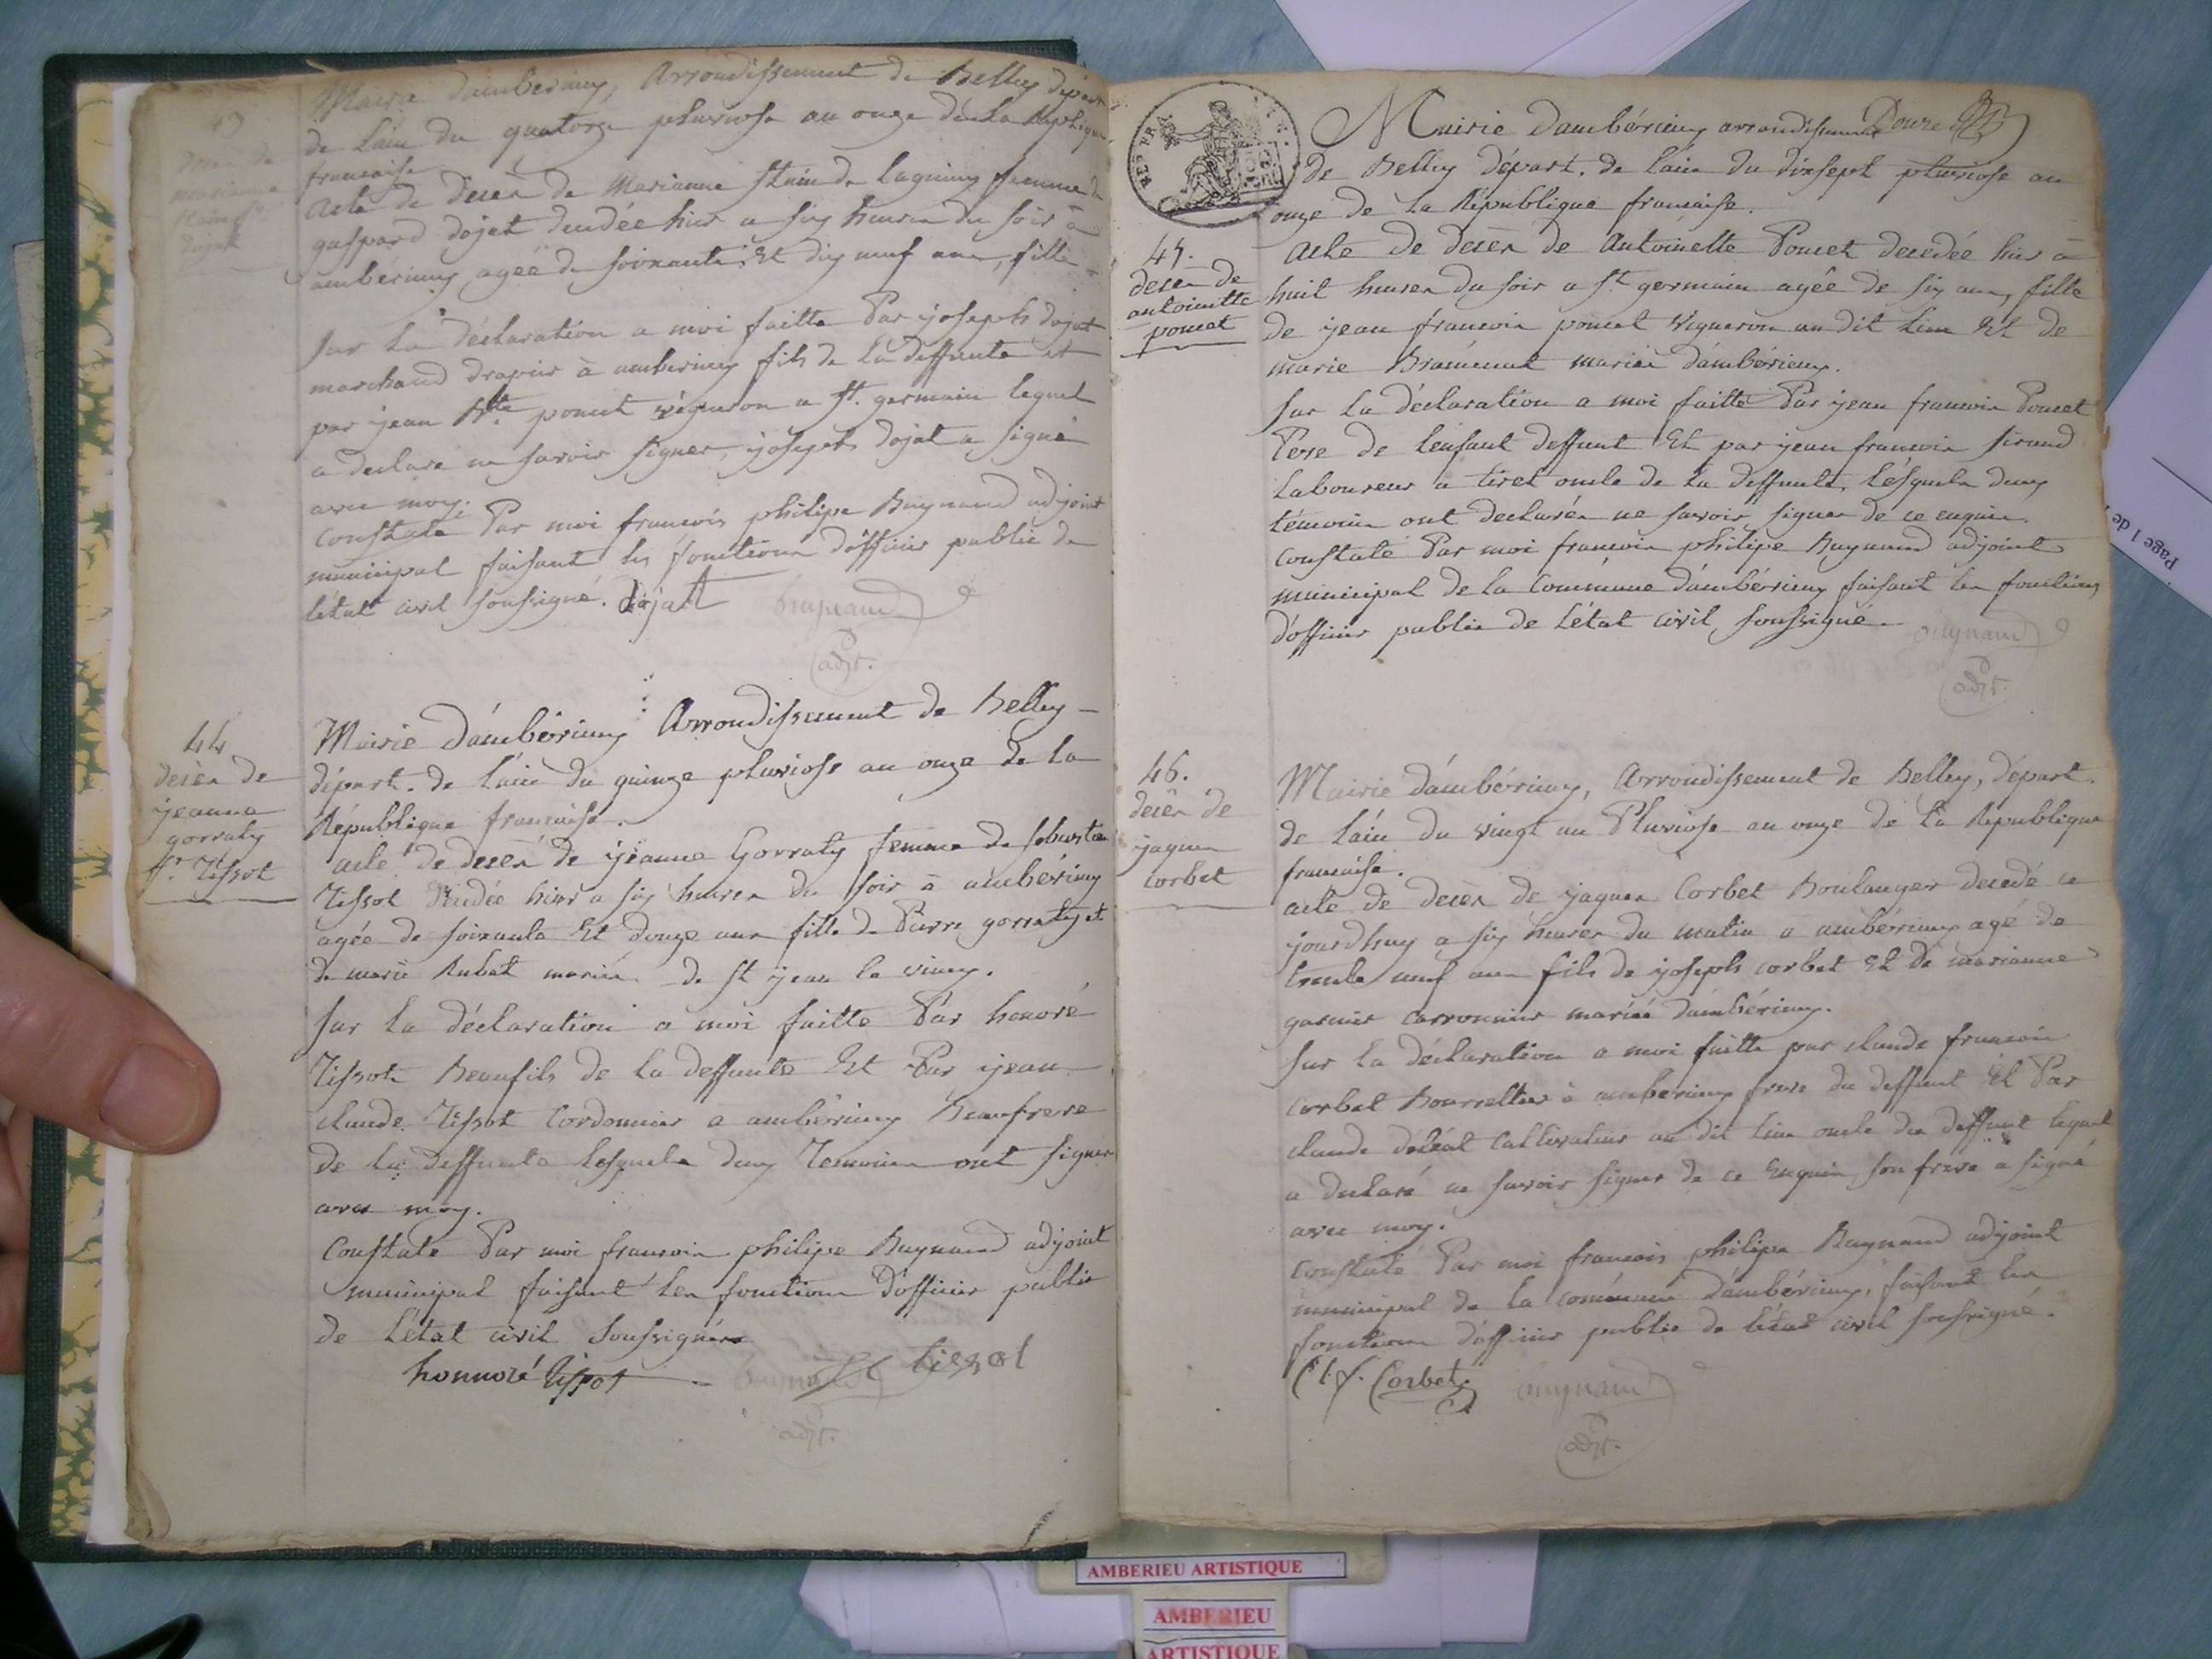 43
decès de
marianne
Stain fe
dojat
Mairie d'ambérieux, Arrondissement de Belley départ.
de l'ain du quatorze pluviose an onze de la République
francaise
Acte de decès de Marianne Stain de lagnieux femme de
gaspard dojat decedée hier a six heures du soir à
ambérieux agée de soixante Et dix neuf ans, fille
Sur la déclaration a moi faitte Par joseph dojat
marchand drapier à amberieux fils de la deffunte et
par jean Bte poncet vigneron a St. germain lequel
a declaré ne savoir signer, joseph dojat a signé
avec moy.
Constaté Par moi francois philipe Buynand adjoint
municipal faisant les fonctions d'officier public de
l'état civil soussigné. dojat Buynand
adjt.
44
decès de
jeanne
gorraty
fe. Tissot
Mairie d'ambérieux Arrondissement de Belley
départ. de l'ain du quinze pluviose an onze de la
République francaise.
acte de decès de jeanne Gorraty femme de sebastien
Tissot decedée hier a six heures du soir à ambérieux
agée de soixante Et douze ans fille de Pierre gorraty et
de marie Rubat mariés de St jean le vieux.
Sur la déclaration a moi faitte Par honoré
Tissot Beaufils de la deffunte Et Par jean
claude Tissot Cordonnier a ambérieux Beaufrere
de la deffunte lesquels deux Temoins ont signer
avec moy.
Constaté Par moi francois philipe Buynand adjoint
municipal faisant les fonctions d'officier public
de l'état civil soussigné
honnoré tissot Buynand tissot
adjt.
Douze
Mairie d'ambérieux arrondissement
de Belley départ. de l'ain du dixsept pluviose an
onze de la République francaise.
45.
decès de
antoinette
poncet
Acte de decès de Antoinette Poncet decedée hier à
huit heures du soir a St germain agée de six ans, fille
de jean francois poncet vigneron au dit lieu Et de
marie mariés d'ambérieux.
Sur la déclaration a moi faitte Par jean francois Poncet
Pere de l'enfant deffunt Et par jean francois sirand
Laboureur a tiret oncle de la deffunte, lesquels deux
témoins ont declarés ne savoir signer de ce enquis.
Constaté Par moi francois philipe Buynand adjoint
municipal de la Commune d'ambérieux faisant les fonctions
d'officier public de l'état civil soussigné. Buynand
adjt.
46.
decès de
jaques
corbet
Mairie d'ambérieux, Arrondissement de Belley, départ.
de l'ain du vingt un Pluviose an onze de la République
francaise.
acte de decès de jaques Corbet Boulanger decedé ce
jourdhuy a six heures du matin a ambérieux agé de
trente neuf ans fils de joseph corbet Et de marianne
garnier mariés d'ambérieux.
Sur la déclaration a moi faitte par claude francois
Corbet Bourrellier à amberieux frere du deffunt Et Par
claude Cultivateur au dit lieu oncle du deffunt lequel
a declaré ne savoir signer de ce Enquis, son frere a signé
avec moy.
Constaté Par moi francois philipe Buynand adjoint
municipal de la commune d'ambérieux, faisant les
fonctions d'officier public de l'état civil soussigné.
Cl. f. Corbet Buynand
adjt.
Page 1 de
AMBERIEU ARTISTIQUE
AMBERIEU
ARTISTIQUE